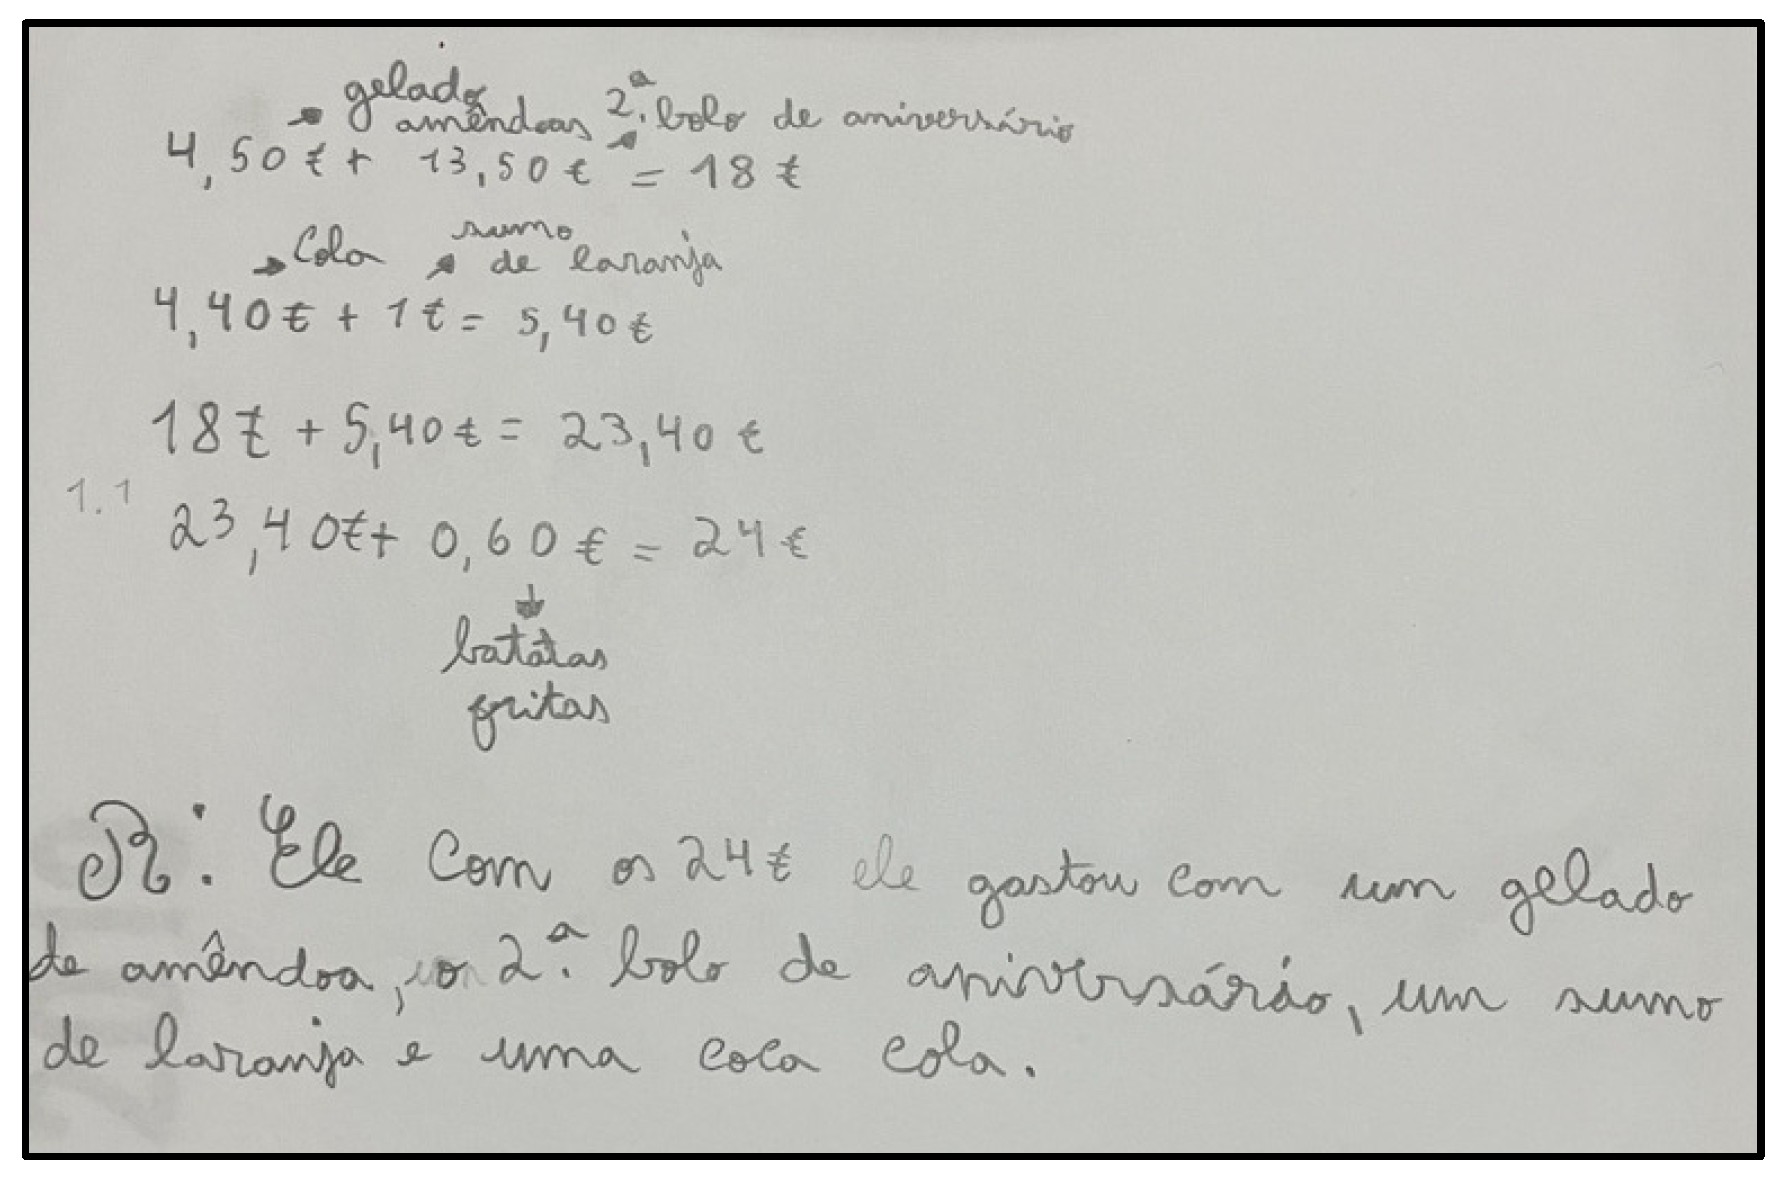 gelado
amêndoas 2.ª bolo de aniversário
4,50€ + 13,50€ = 18€
Cola sumo
de laranja
4,40€ + 1€ = 5,40€
18€ + 5,40€ = 23,40€
1.1
23,40€ + 0,60€ = 24€
batatas
fritas
R: Ele com os 24€ ele gastou com um gelado
de amêndoa, o 2.ª bolo de aniversário, um sumo
de laranja e uma coca cola.